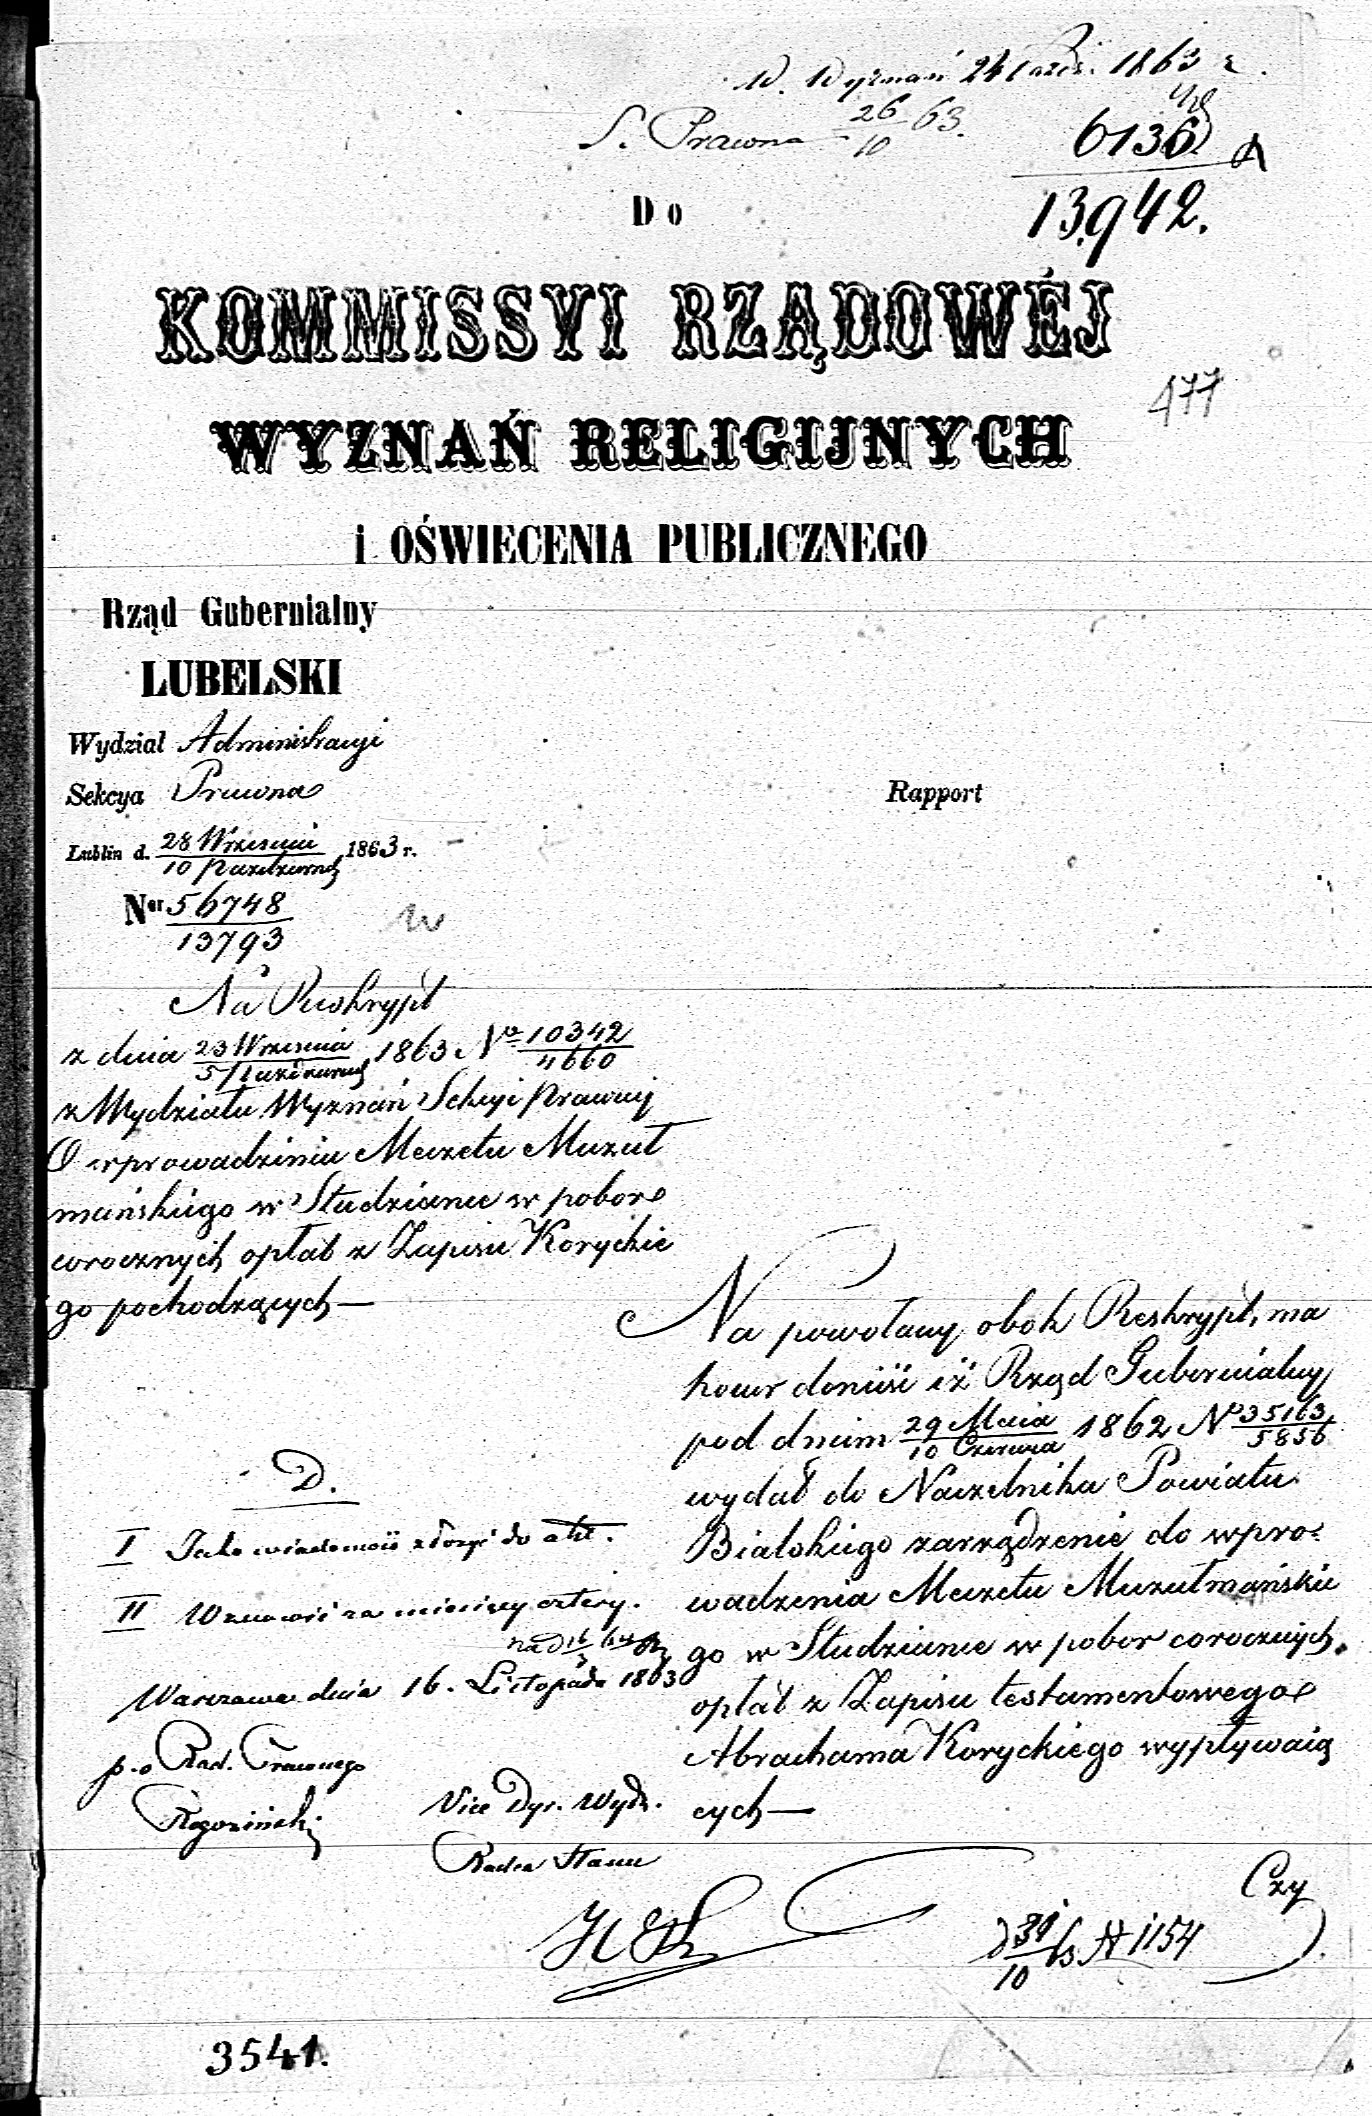 W. Wyznań 24 Paźdz. 1863 r.
S. Prawna 26/10 63.
6136
13942.
Do
KOMMISSYI RZĄDOWÉJ
477
WYZNAŃ RELIGIJNYCH
i OŚWIECENIA PUBLICZNEGO
Rząd Gubernialny
LUBELSKI
Wydział Administracyi
Sekcya Prawna
Rapport
Lublin d. 28 Września / 10 Października 1863 r.
Ner 56748 / 13793
Na Reskrypt
z dnia 23 Września / 5 Październ 1863 No 10342 / 4660
z Wydziału Wyznań Sekcyi Prawnej
O wprowadzeniu Meczetu Muzuł
mańskiego w Studziance w pobor
corocznych opłat z Zapisu Koryckie
go pochodzących —
Na powołany obok Reskrypt, ma
honor donieść iż Rząd Gubernialny
pod dniem 29 Maia / 10 Czerwca 1862 No 35163 / 5856
wydał do Naczelnika Powiatu
Bialskiego zarządzenie do wpro-
wadzenia Meczetu Muzułmańskie
go w Studziance w pobor corocznych
opłat z Zapisu testamentowego
Abrachama Koryckiego wypływaią
cych —
Czy
D.
I Jako wiadomość złożyć do akt.
II Wznowić za miesięcy cztery.
na d 16/3 64
Warszawa dnia 16. Listopada 1863
p.o Rad. Prawnego
Rogoziński
Vice Dyr. Wydz.
Radca Stanu
d 31/10 63 N 1154
3541.